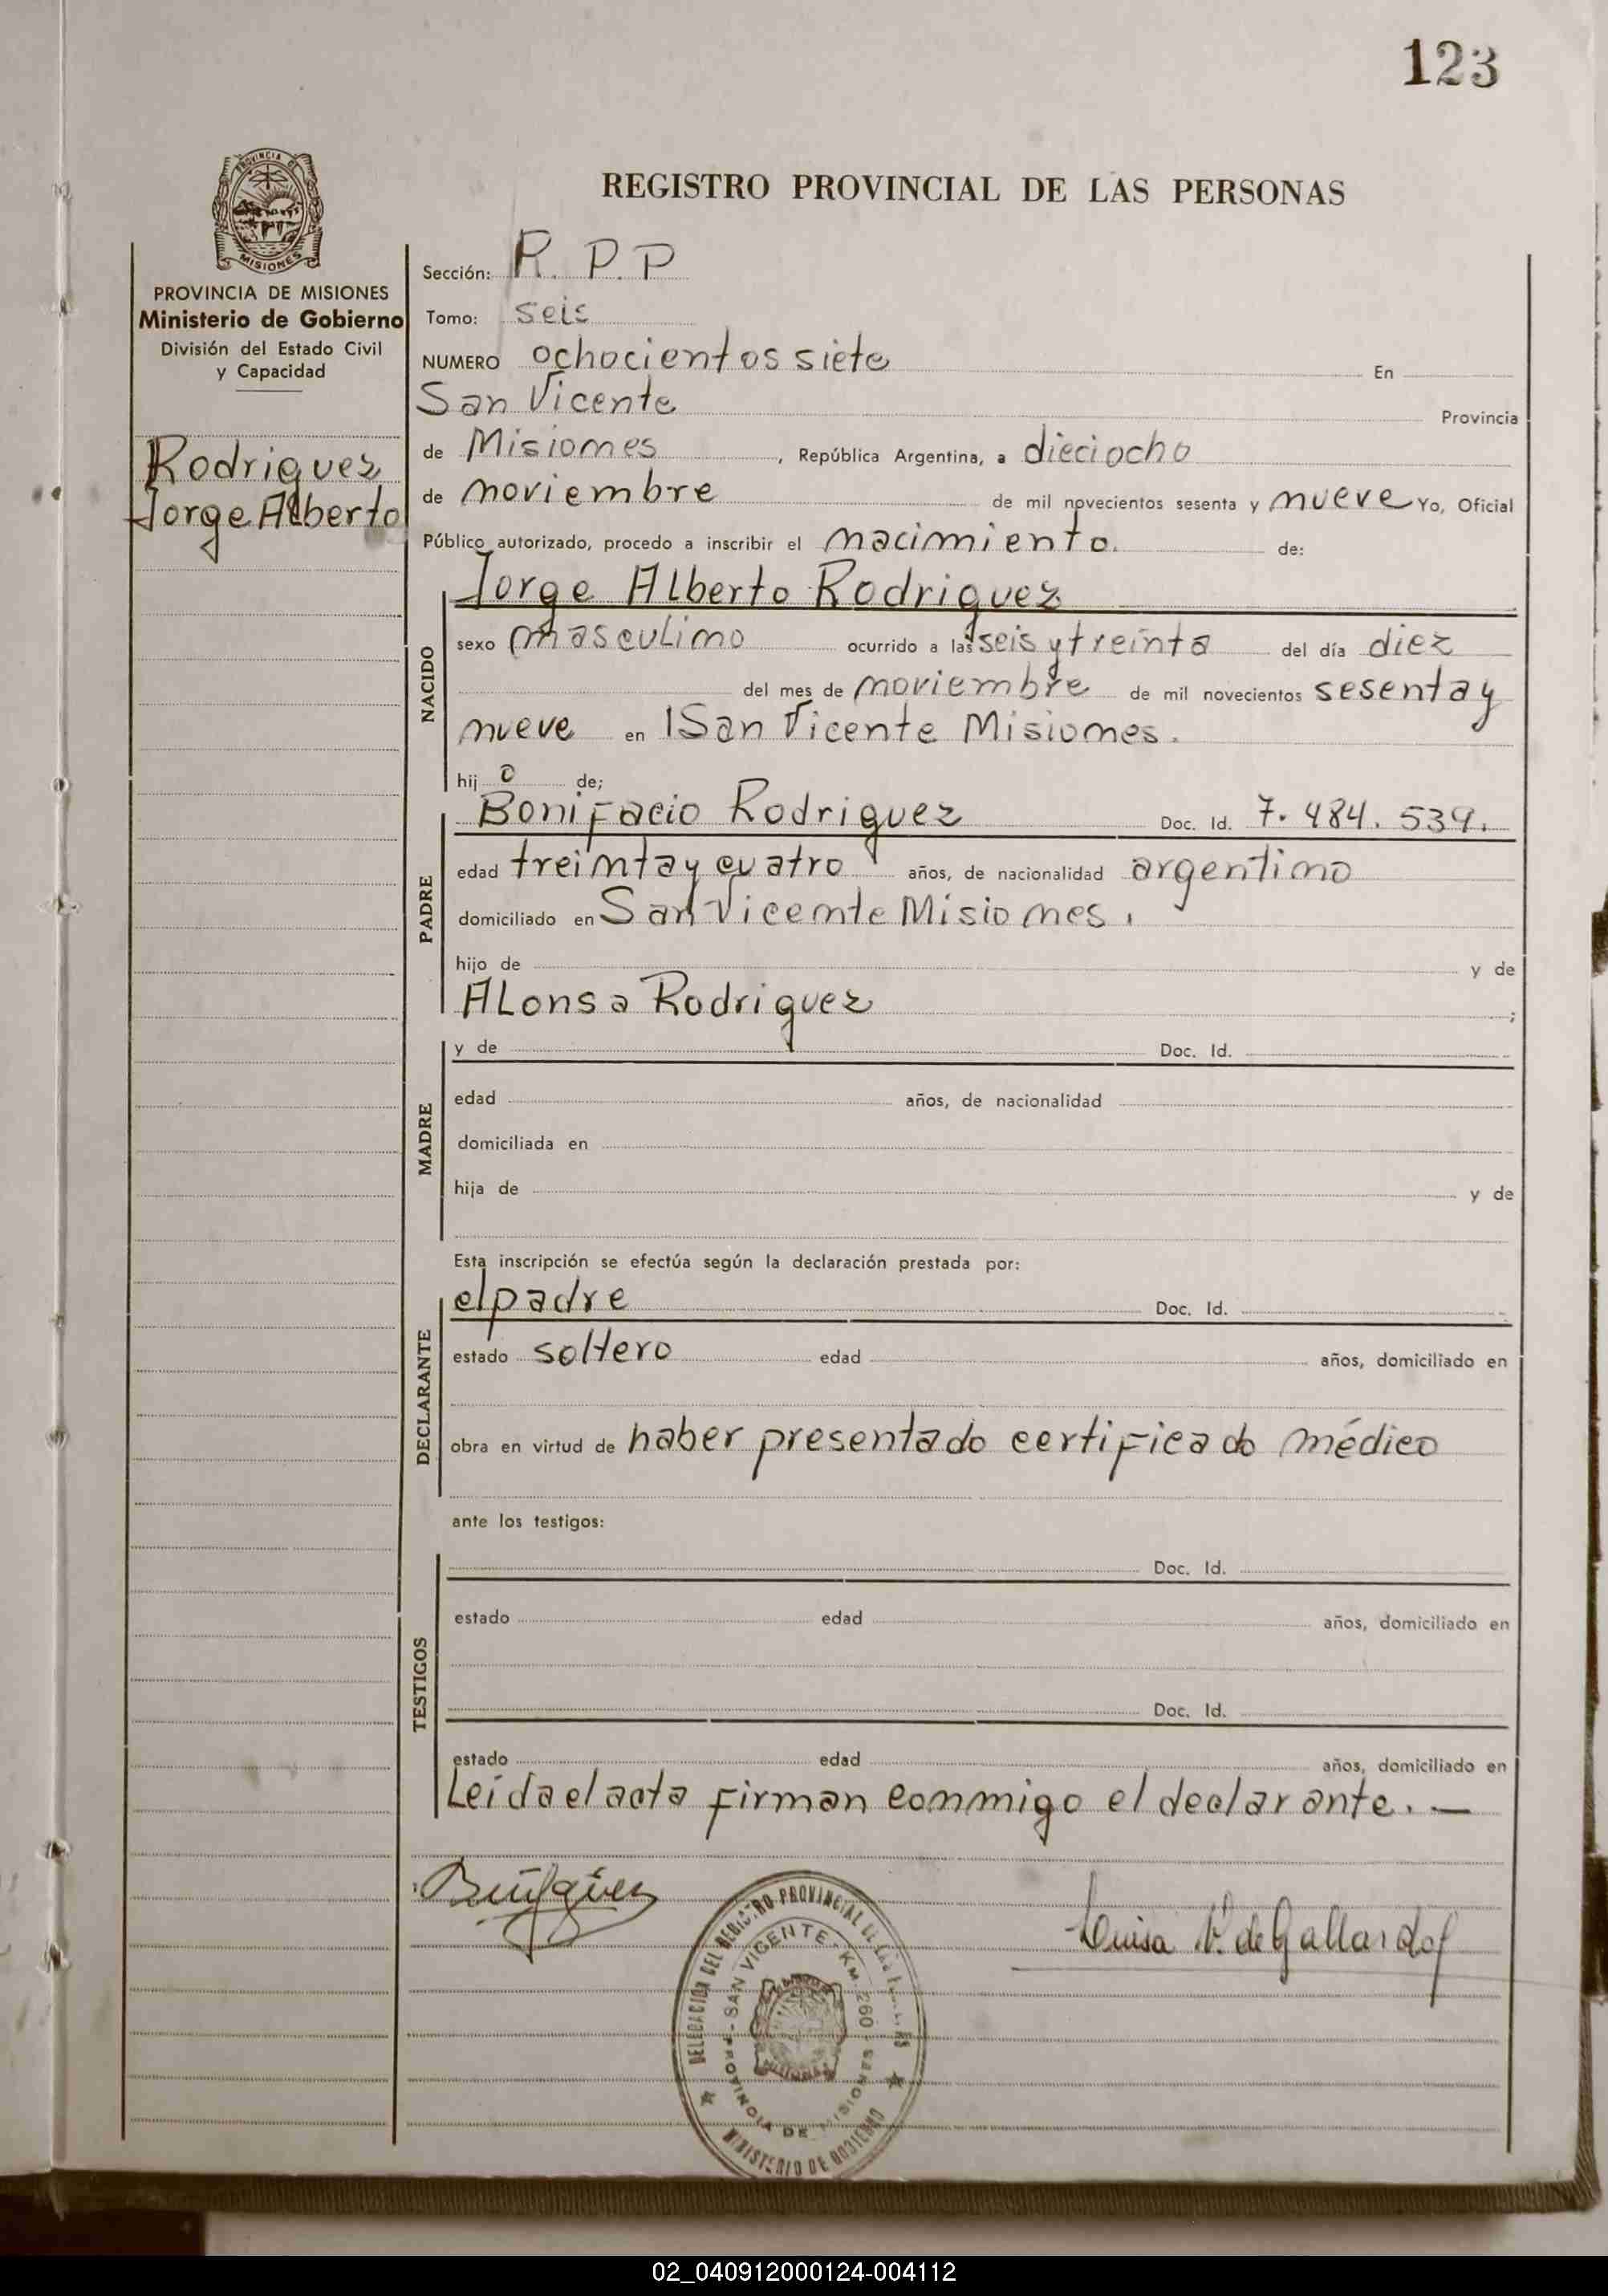 123
REGISTRO PROVINCIAL DE LAS PERSONAS
PROVINCIA DE
MISIONES
PROVINCIA DE MISIONES
Ministerio de Gobierno
División del Estado Civil
y Capacidad
Rodriguez
Jorge Alberto
Sección: R. P. P
Tomo: seis
NUMERO ochocientos siete En
San Vicente Provincia
de Misiones, República Argentina, a dieciocho
de noviembre de mil novecientos sesenta y nueve Yo, Oficial
Público autorizado, procedo a inscribir el nacimiento. de:
NACIDO
Jorge Alberto Rodriguez
sexo masculino ocurrido a las seis y treinta del día diez
del mes de noviembre de mil novecientos sesenta y
nueve en San Vicente Misiones.
hij o de;
PADRE
Bonifacio Rodriguez Doc. Id. 7.484.539.
edad treinta y cuatro años, de nacionalidad argentino
domiciliado en San Vicente Misiones.
hijo de y de
ALonsa Rodriguez ;
MADRE
y de Doc. Id.
edad años, de nacionalidad
domiciliada en
hija de y de
Esta inscripción se efectúa según la declaración prestada por:
DECLARANTE
el padre Doc. Id.
estado soltero edad años, domiciliado en
obra en virtud de haber presentado certificado médico
ante los testigos:
TESTIGOS
Doc. Id.
estado edad años, domiciliado en
Doc. Id.
estado edad años, domiciliado en
Leída el acta firman conmigo el declarante. —
DELEGACION DEL REGISTRO PROVINCIAL DE LAS
SAN VICENTE - KM. 260 - MISIONES
PROVINCIA DE
MINISTERIO DE GOBIERNO
Luisa V. de Gallardo
02_040912000124-004112